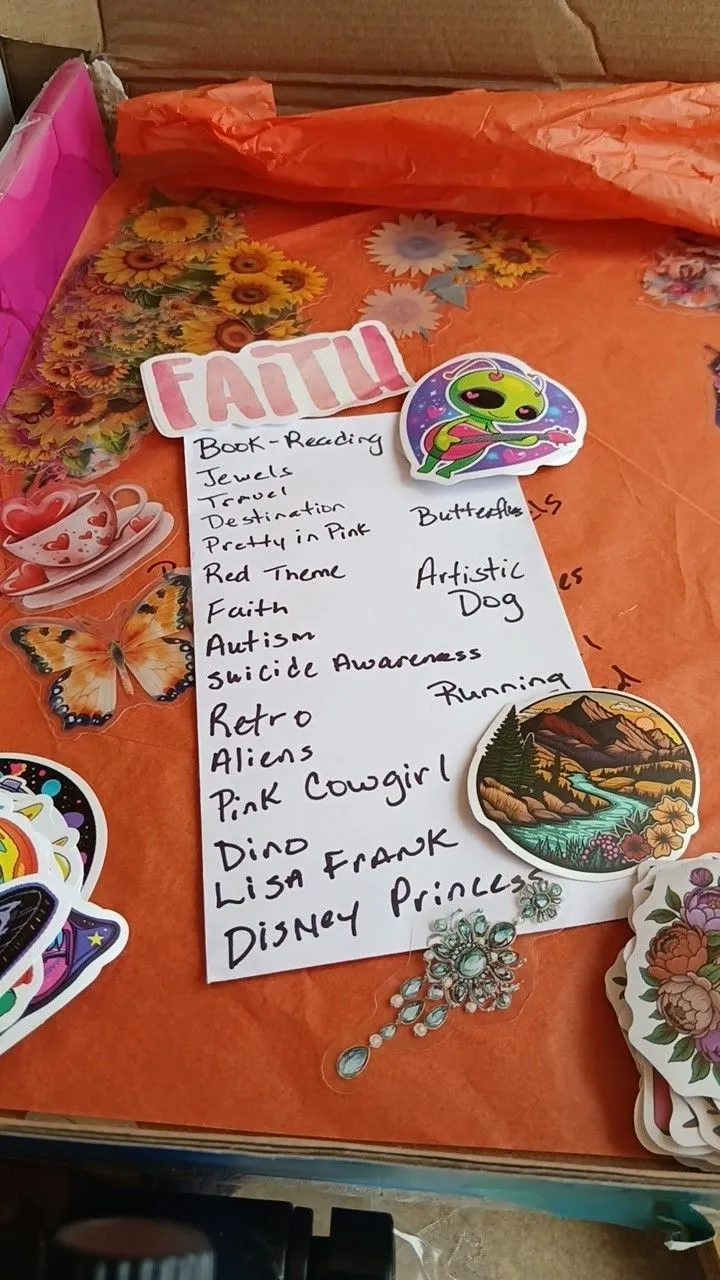 FAITH
Book-Reading
Jewels
Travel
Destination
Pretty in Pink
Butterflies
Red Theme
Artistic
Faith
Dog
Autism
suicide Awareness
Running
Retro
Aliens
Pink Cowgirl
Dino
LISA FRANK
DISNEY Princess